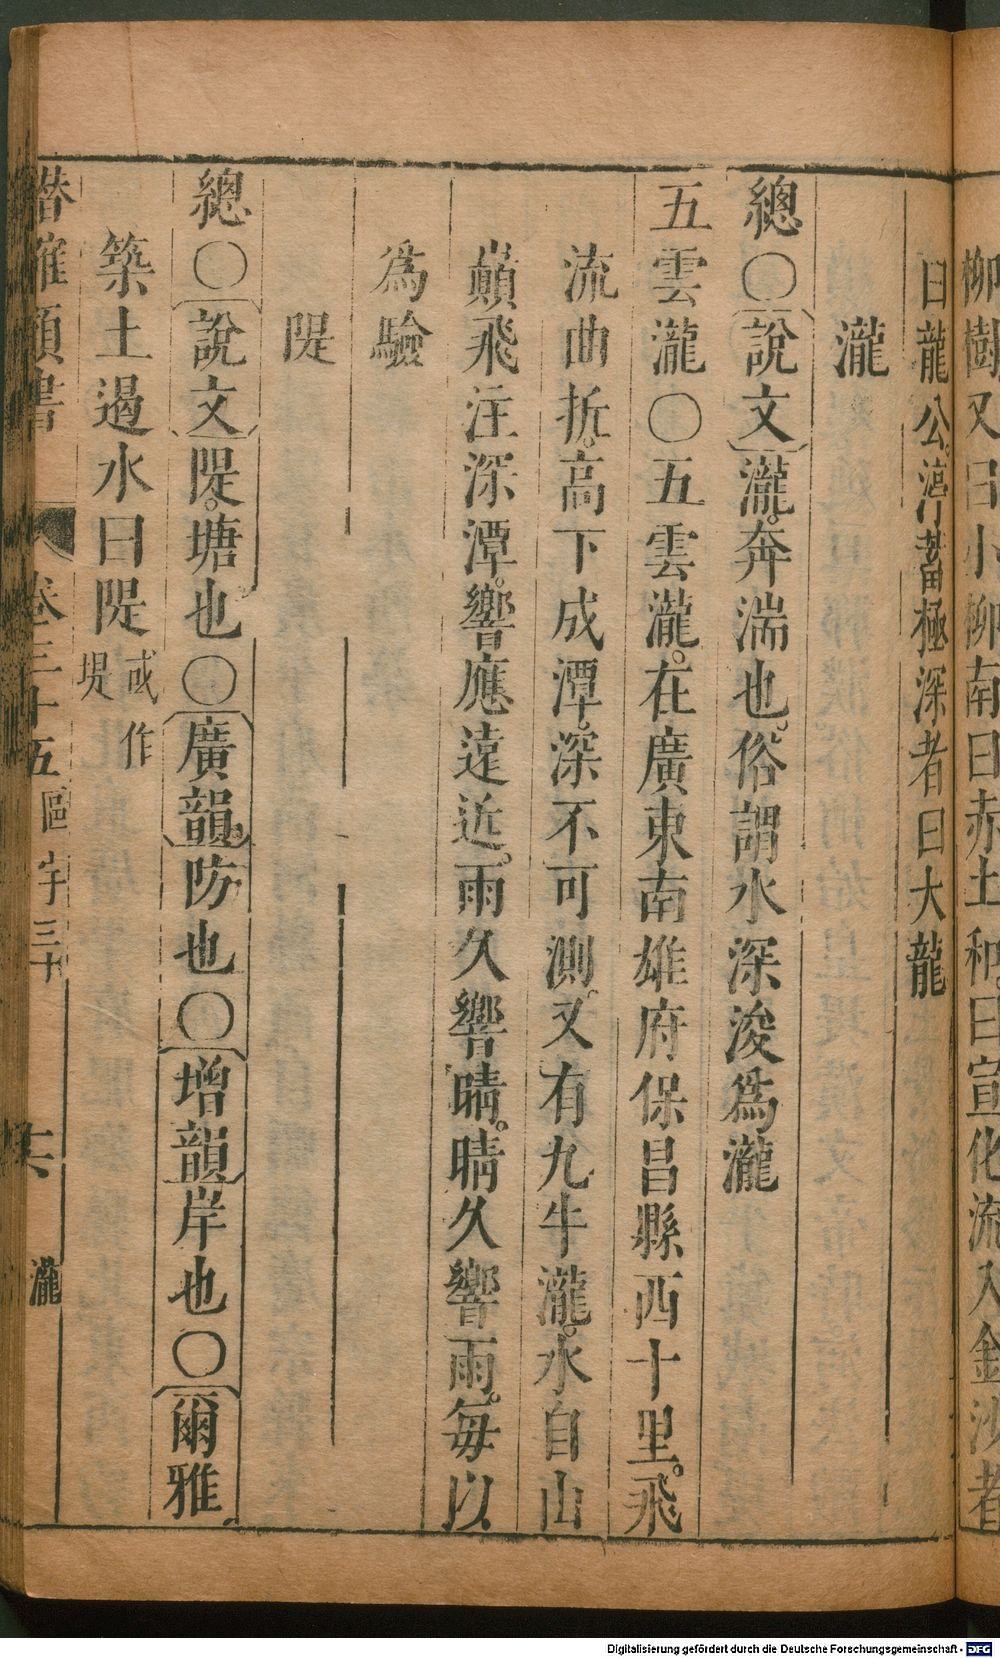 柳樹又曰小柳南曰赤土和曰宣化流入金沙者
曰龍公渟蓄極深者曰大龍
瀧
總○說文瀧奔湍也俗謂水深浚為瀧
五雲瀧○五雲瀧在廣東南雄府保昌縣西十里飛
流曲折高下成潭深不可測又有九牛瀧水自山
巔飛注深潭響應遠近雨久響晴晴久響雨每以
為驗
隄
總○說文隄塘也○廣韻防也○增韻岸也○爾雅
築土遏水曰隄或作堤
潛確類書 卷三十五區宇三十 六 瀧
Digitalisierung gefördert durch die Deutsche Forschungsgemeinschaft - DFG